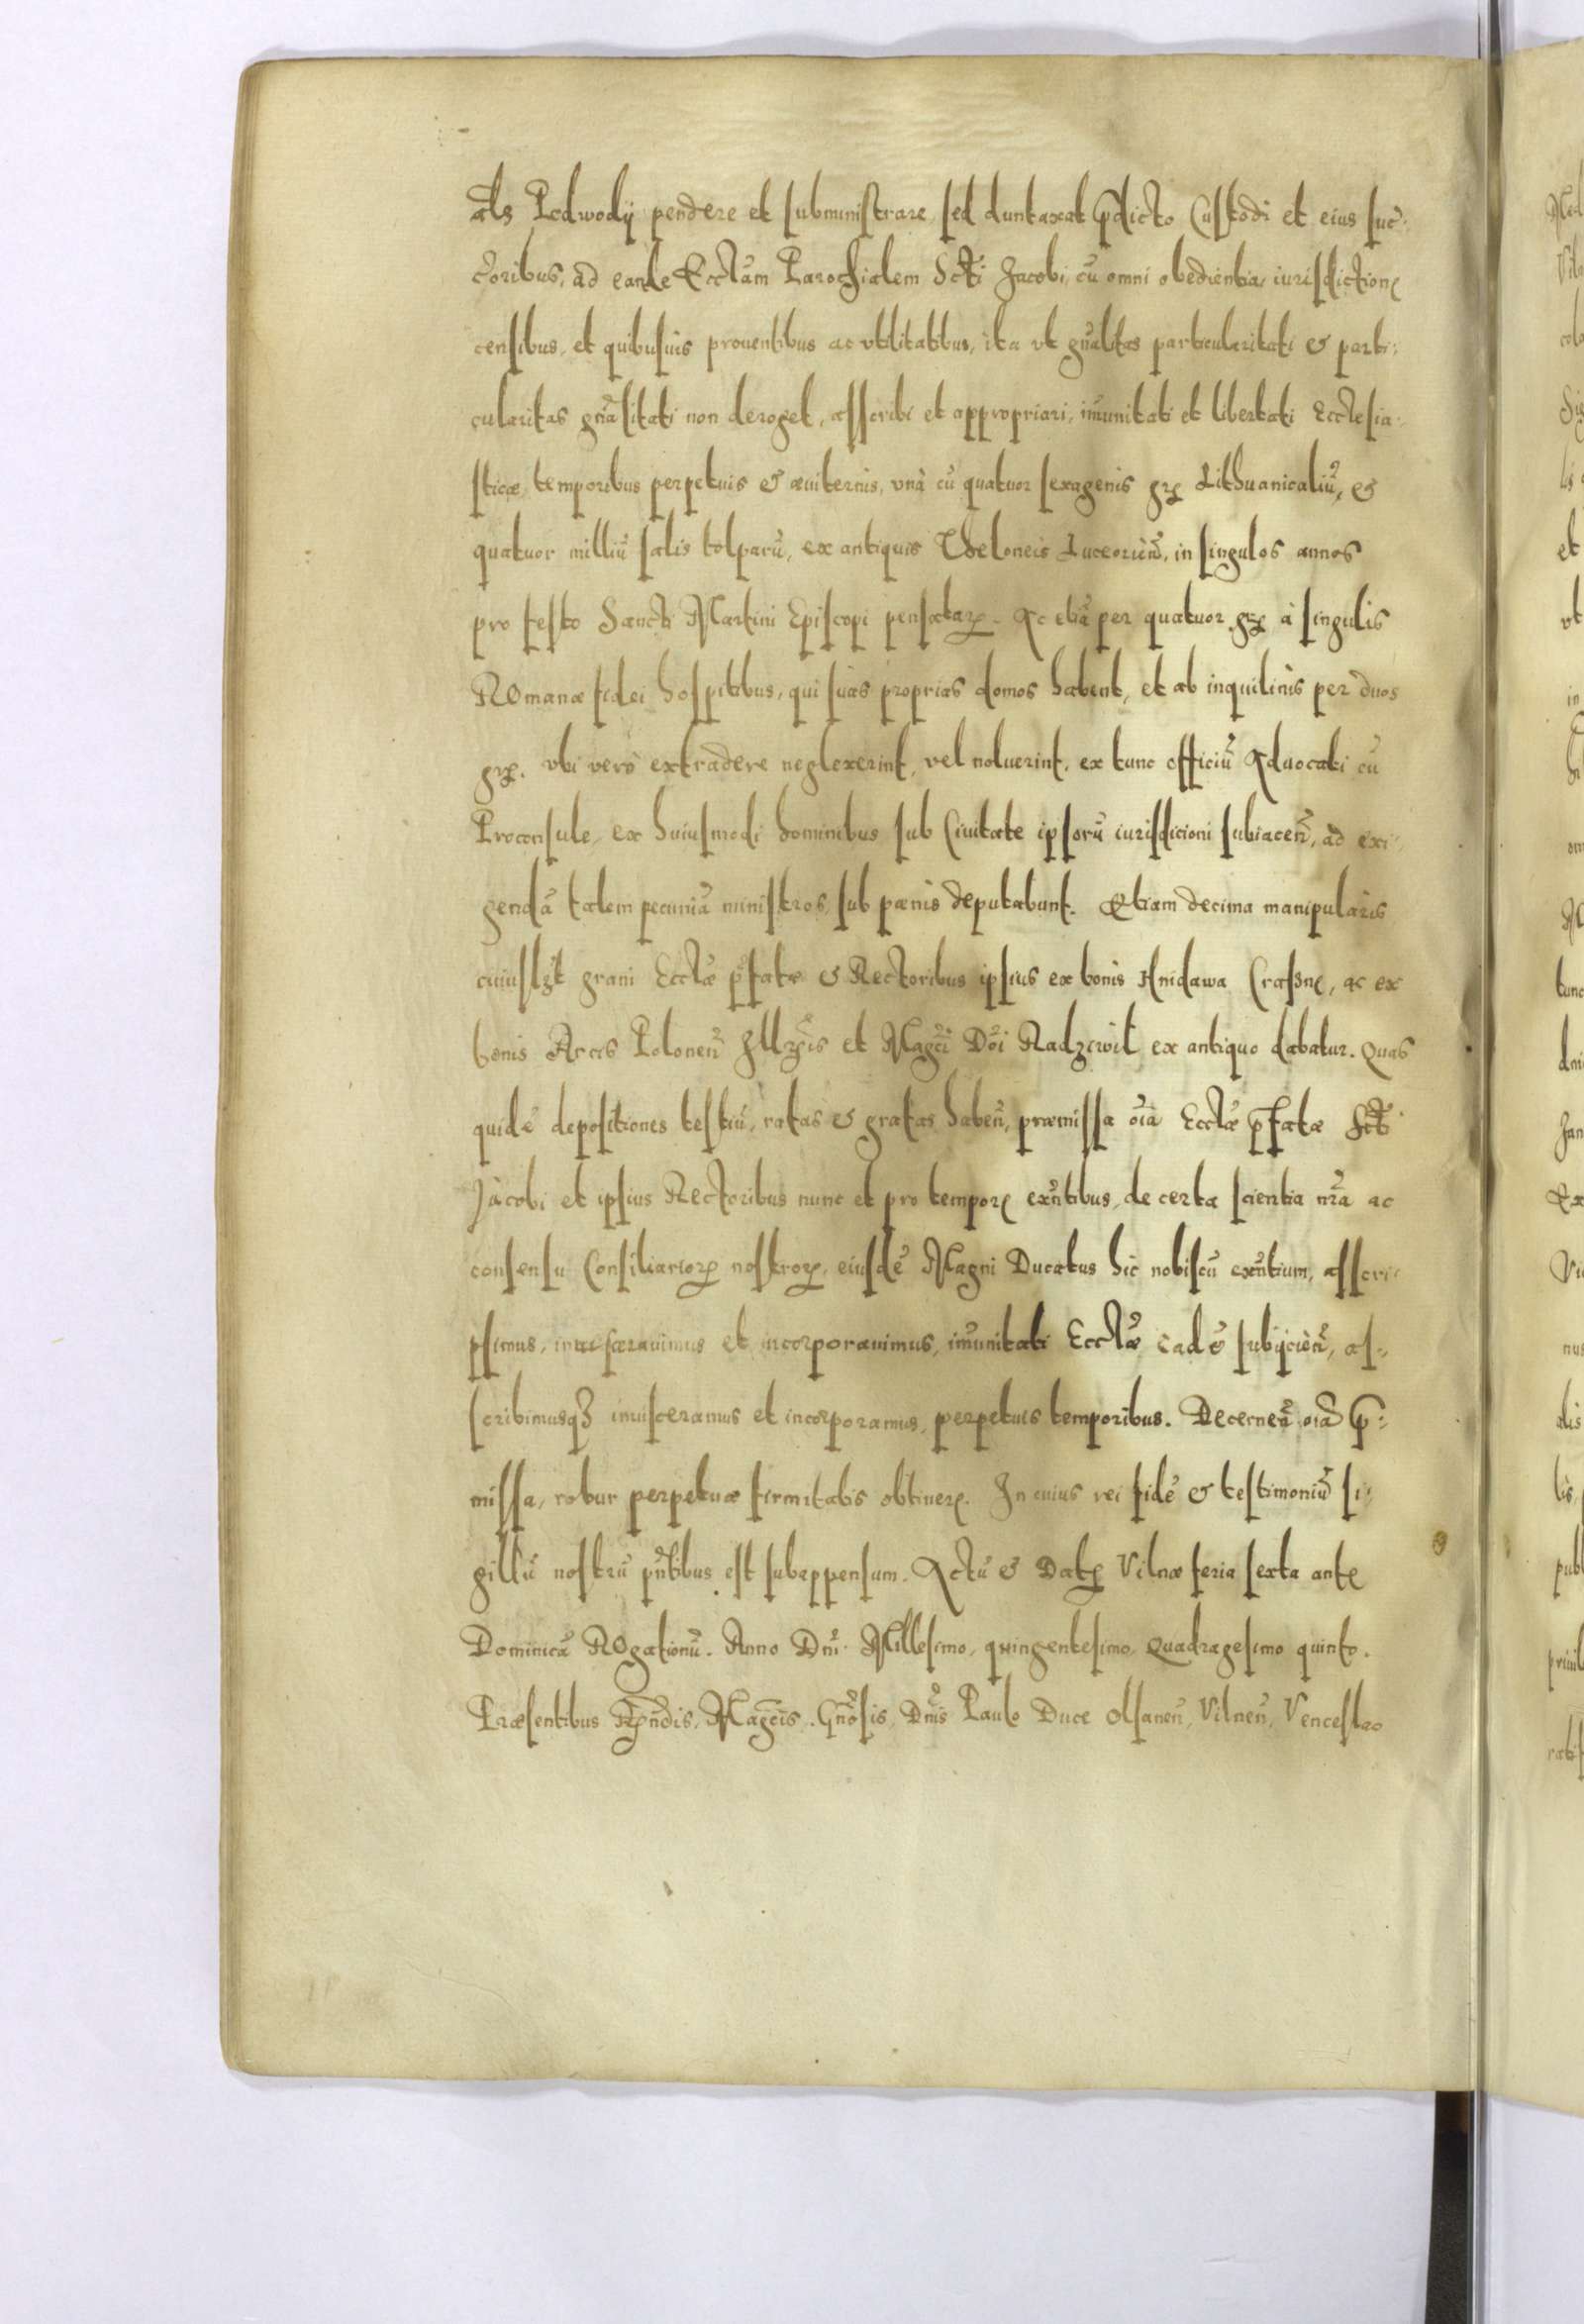 als Podwody pendere et subministrare, sed duntaxat p̃dicto Custodi et eius suc̃-
c̃oribus, ad eande Ecctãm Parochialem Scti Jacobi, cũ omni obedientia, iurisdictione
censibus, et quibusuis prouentibus ac vtilitatibus, ita vt gñalitas particularitati & parti-
cularitas gñalitati non deroget, asscribi et appropriari, im̃unitati et libertati Ecclesia-
sticæ, temporibus perpetuis & æuiternis, vnà cũ quatuor sexagenis gr̃ Lithuanicaliũ, &
quatuor milliũ salis tolparũ, ex antiquis Theloneis Luceorieñ, in singulos annos
pro festo Sancti Martini Episcopi pensatar̃. Ac etiã per quatuor gr̃ à singulis
ROmanæ fidei hospitibus, qui suas proprias domos habent, et ab inquilinis per duos
gr̃. vbi verò extradere neglexerint, vel noluerint, ex tunc officiũ Aduocati cũ
Proconsule, ex huiusmodi hominibus sub Ciuitate ipsorũ iurisdicioni subiaceñ, ad exi-
gendã talem pecuniã ministros, sub pænis deputabunt. Etiam decima manipularis
cuiuslꝫt grani Ecctæ p̃fatæ & Rectoribus ipsius ex bonis Hnidawa Crasne, ac ex
bonis Arcis Poloneñ et Magc̃i Dñi Radziwil ex antiquo dabatur. Quas
quidẽ depositiones testiũ, ratas & gratas habeñ, præmissa oĩa Ecctæ p̃fatæ Scti
Jacobi et ipsius Rectoribus nunc et pro tempore exñtibus, de certa scientia nr̃a ac
consensu Consiliarior̃ nostror̃, eiusdẽ Magni Ducatus hic nobiscũ exñtium, asscri-
psimus, inuisceravimus et incorporauimus, im̃unitati Ecctæ eadẽ subijcieñ, as-
scribimusqꝫ inuisceramus et incorporamus, perpetuis temporibus. Decerneñ oĩa p̃-
missa, robur perpetuæ firmitatis obtinere. In cuius rei fidẽ & testimoniũ si-
gillũ nostrũ pñtibus est subappensum. Actũ & Dat̃ Vilnæ feria sexta ante
Dominicã ROgationũ. Anno Dñi Millesimo, quingentesimo, Quadragesimo quinto.
Præsentibus Rñdis, Magcis, Gñosis, Dñis Paulo Duce Olsaneñ, Vilneñ, Venceslao